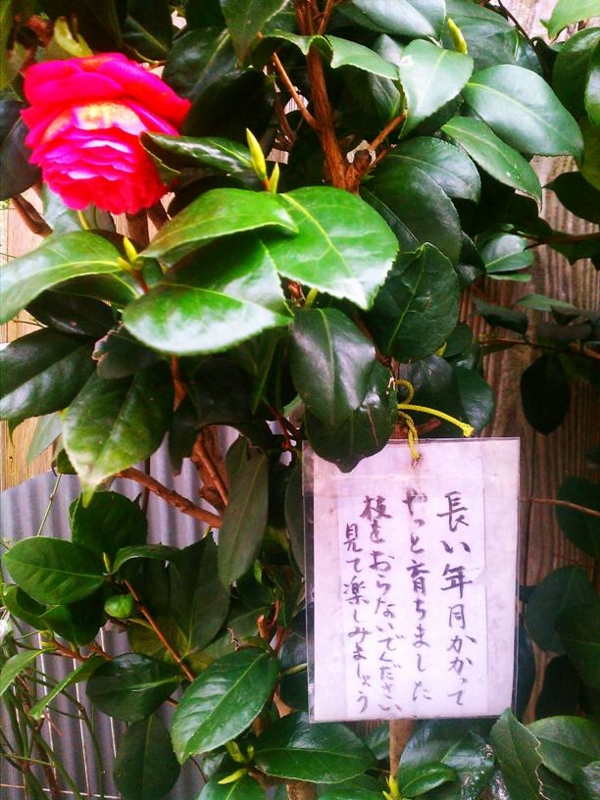 長い年月かかって
やっと育ちました
枝をおらないでください
見て楽しみましょう